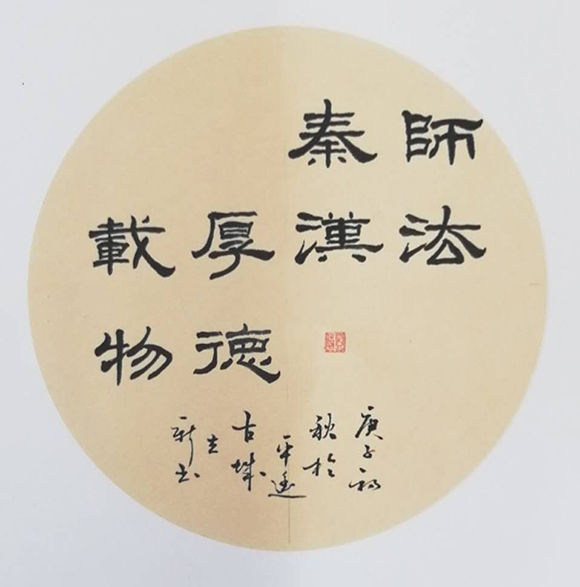 師法
秦漢
厚德
載物
庚子初
秋於
平遥
古城
立
新书